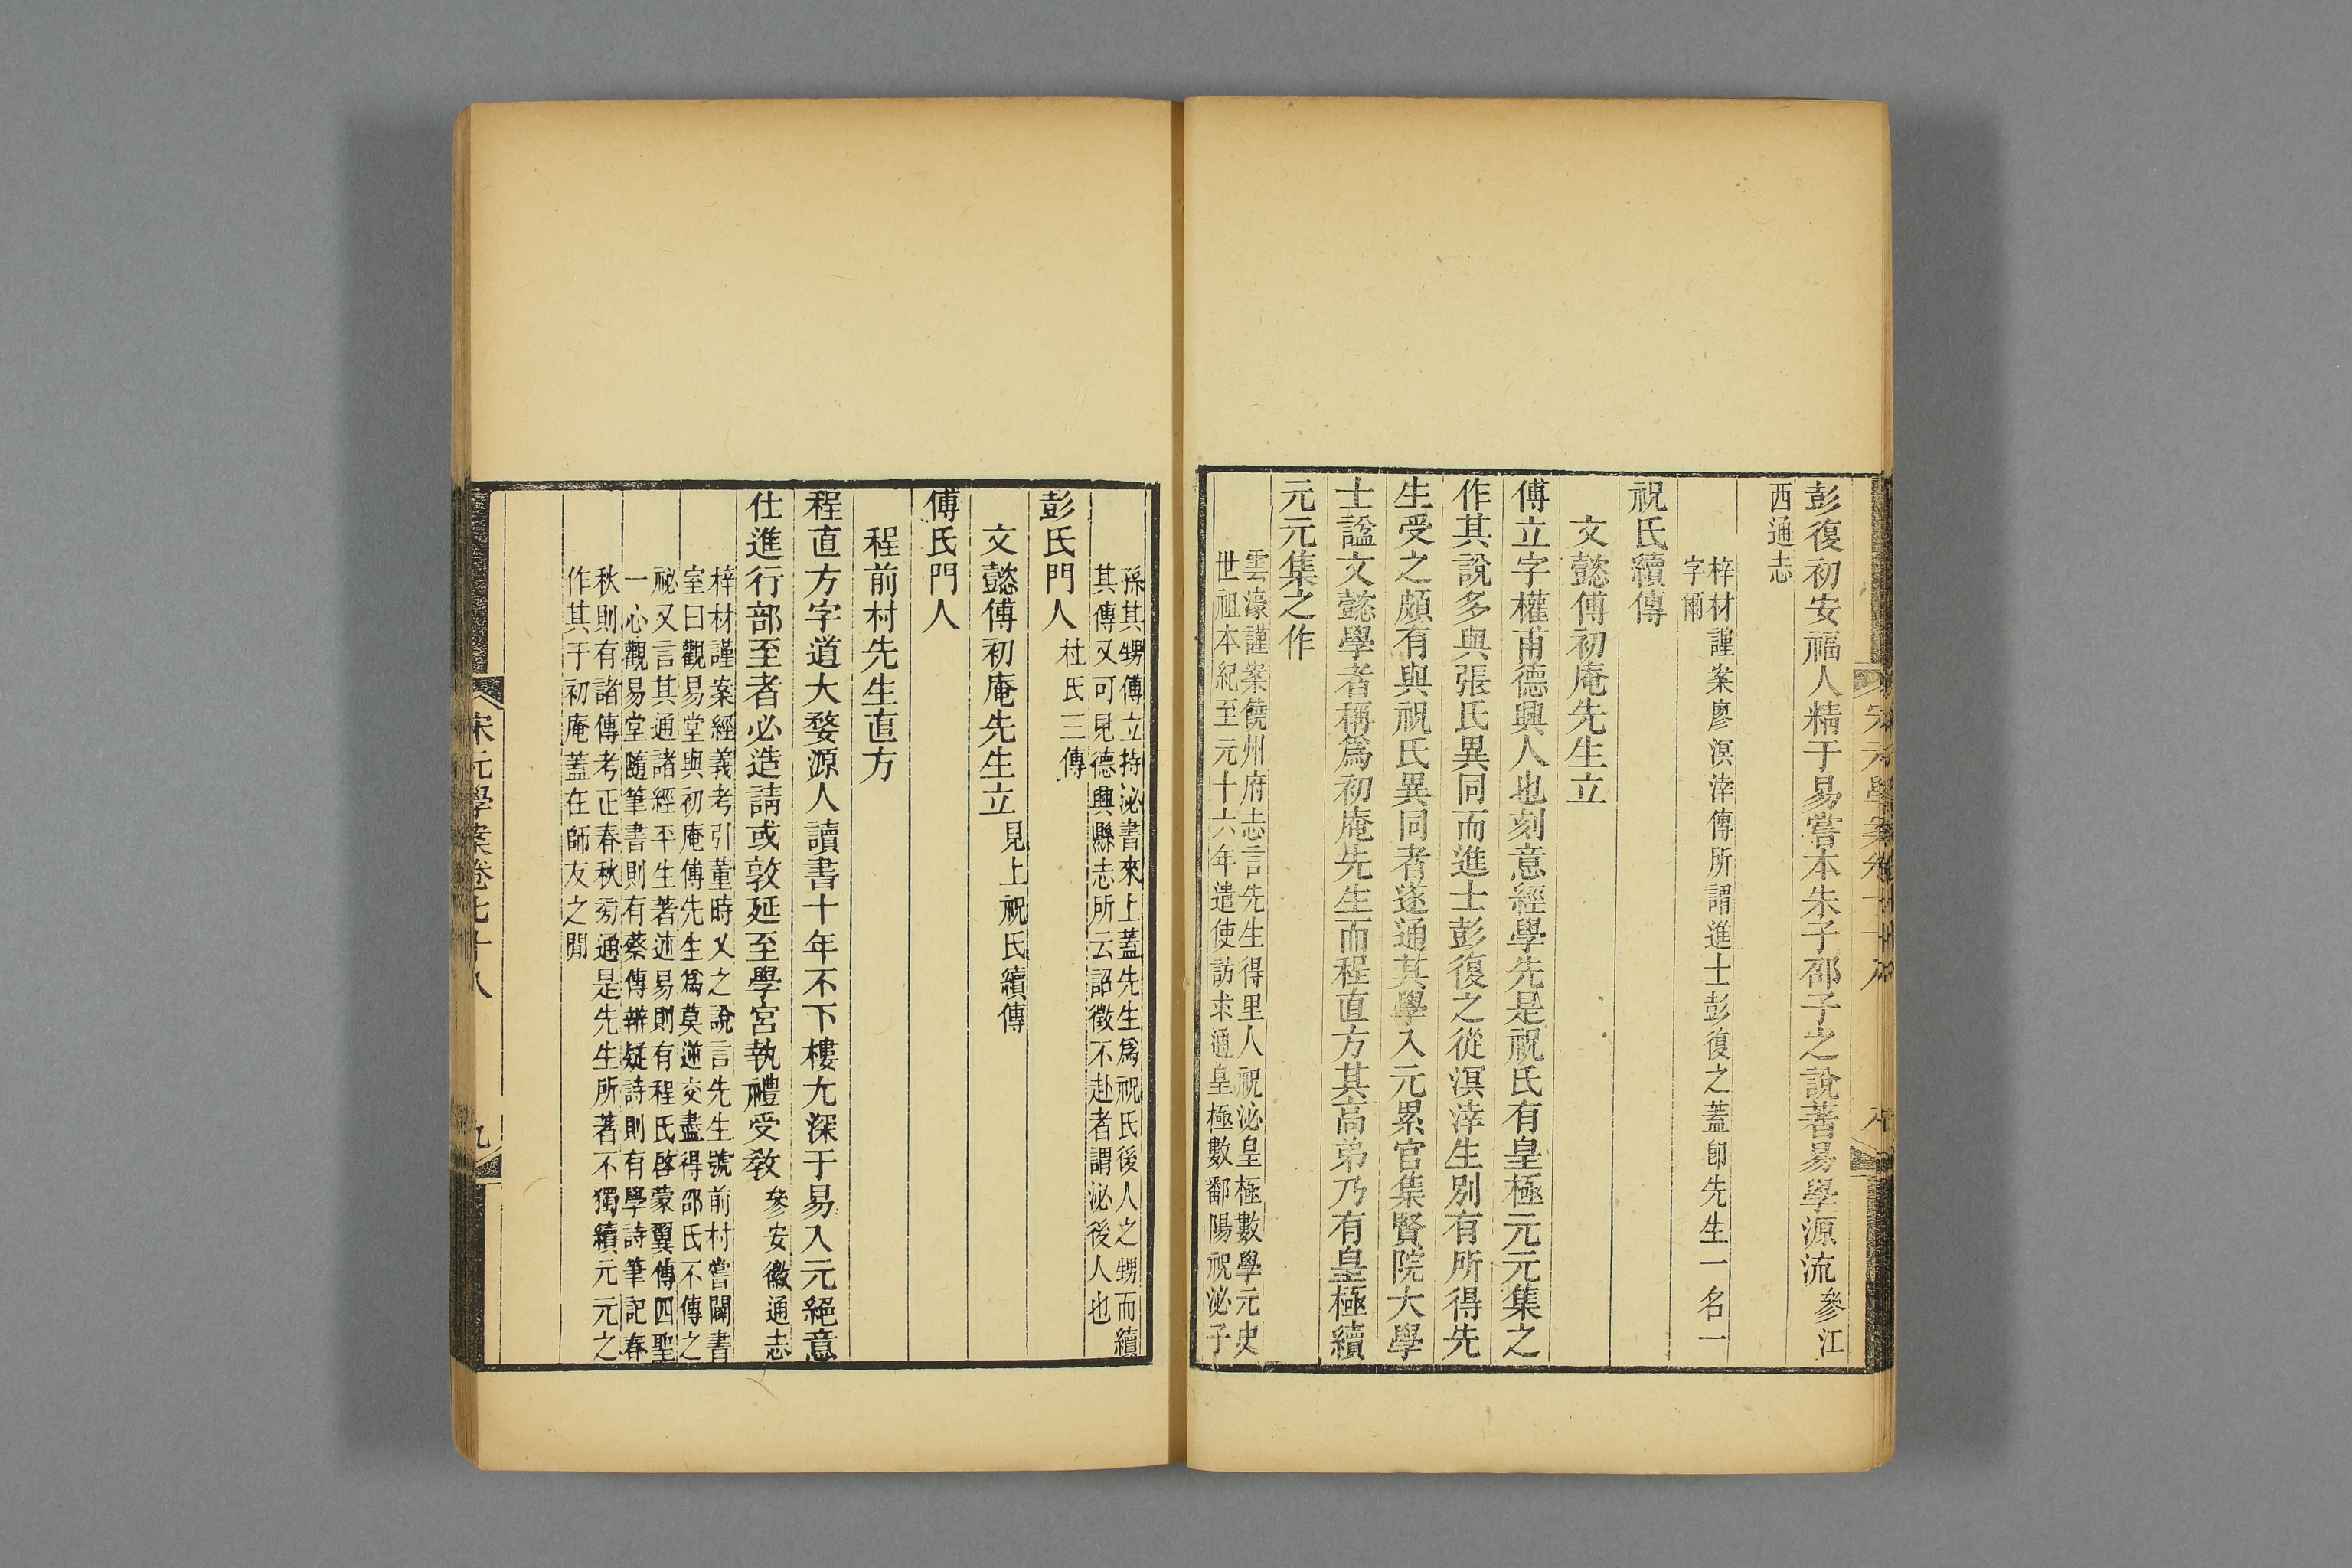 彭復初安福人精于易嘗本朱子邵子之說著易學源流參江
西通志
梓材謹案廖溟涬傳所謂進士彭復之蓋卽先生一名一
字爾
祝氏續傳
文懿傅初庵先生立
傅立字權甫德興人也刻意經學先是祝氏有皇極元元集之
作其說多與張氏異同而進士彭復之從溟涬生別有所得先
生受之頗有與祝氏異同者遂通其學入元累官集賢院大學
士諡文懿學者稱爲初庵先生而程直方其高弟乃有皇極續
元元集之作
雲濠謹案饒州府志言先生得里人祝泌皇極數學元史
世祖本紀至元十六年遣使訪求通皇極數鄱陽祝泌子
孫其甥傅立持泌書來上蓋先生爲祝氏後人之甥而續
其傳又可見德興縣志所云詔徵不赴者謂泌後人也
彭氏門人杜氏三傳
文懿傅初庵先生立見上祝氏續傳
傅氏門人
程前村先生直方
程直方字道大婺源人讀書十年不下樓尤深于易入元絕意
仕進行部至者必造請或敦延至學宮執禮受教參安徽通志
梓材謹案經義考引董時乂之說言先生號前村嘗闢書
室曰觀易堂與初庵傅先生爲莫逆交盡得邵氏不傳之
祕又言其通諸經平生著述易則有程氏啓蒙翼傳四聖
一心觀易堂隨筆書則有蔡傳辨疑詩則有學詩筆記春
秋則有諸傳考正春秋旁通是先生所著不獨續元元之
作其于初庵蓋在師友之閒
宋元學案卷七十八
九